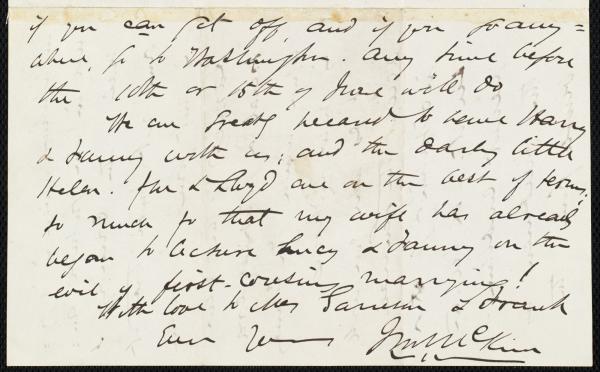 if you can get off, and if you go any=
where, go to Washington. Any time before
the 10th or 15th of June will do
We are greatly pleased to have Harry
& Fanny with us; and the darling little
Helen. She & Lloyd are on the best of terms;
so much so that my wife has already
began to lecture Lucy & Fanny on the
evil of first-cousins marrying!
With love to Mrs Garrison & Frank
Ever Yours J. M. McKim